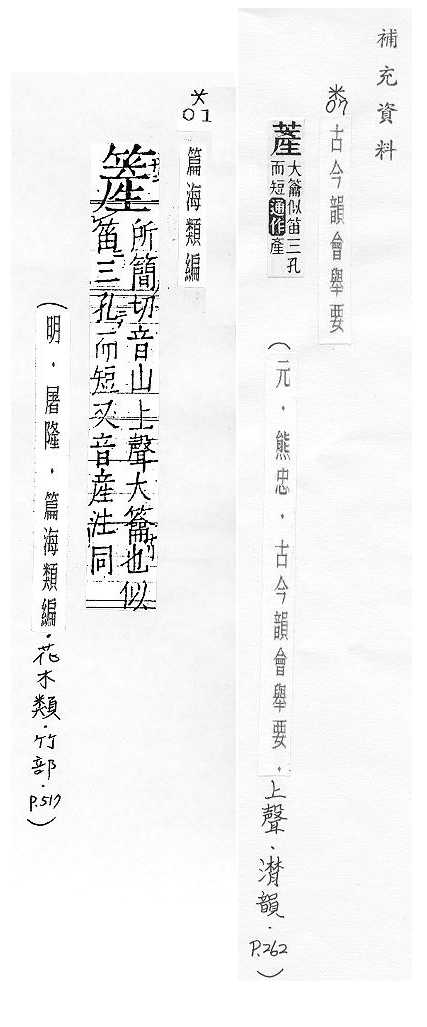 補充資料
07
古今韻會舉要
簅
大籥似笛三孔
而短通作產
(元．熊忠．古今韻會舉要．上聲．潸韻．P.262)
01
篇海類編
簅
所簡切音山上聲大籥也似
笛三孔而短又音産注同
(明．屠隆．篇海類編．花木類．竹部．P.517)